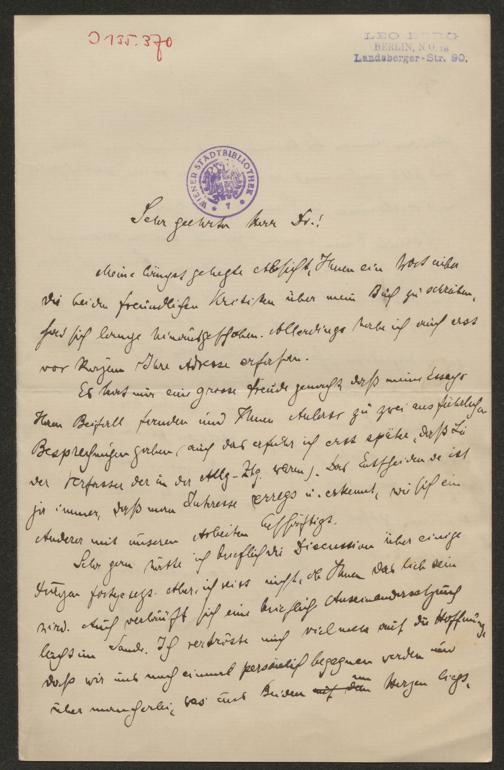 J 155.370
LEO BERG
BERLIN, N.O. 18
Landsberger-Str. 90.
WIENER STADTBIBLIOTHEK
Sehr geehrter Herr Dr.!
Meine längst gehegte Absicht, Ihnen ein Wort über
die beiden freundlichen Kritiken über mein Buch zu schreiben,
hat sich lange hinausgeschoben. Allerdings habe ich auch erst
vor Kurzem Ihre Adresse erfahren.
Es hat mir eine grosse Freude gemacht, daß meine Essays
Ihren Beifall fanden und Ihnen Anlass zu zwei ausführlichen
Besprechungen gaben, auch das erfuhr ich erst später, daß Sie
der Verfasser der in der Allg. Ztg. waren). Das Entscheidende ist
ja immer, daß man Interesse errege u. erkennt, wie sich ein
Anderer mit unseren Arbeiten beschäftigt.
Sehr gern hätte ich brieflich die Discussion über einige
Fragen fortgesetzt. Aber ich weiss nicht, ob Ihnen das lieb sein
wird. Auch verläuft sich eine brieflich Auseinandersetzung
leicht im Sande. Ich vertröste mich vielmehr auf die Hoffnung,
daß wir uns noch einmal persönlich begegnen werden und
über mancherlei, was uns Beiden am Herzen liegt,